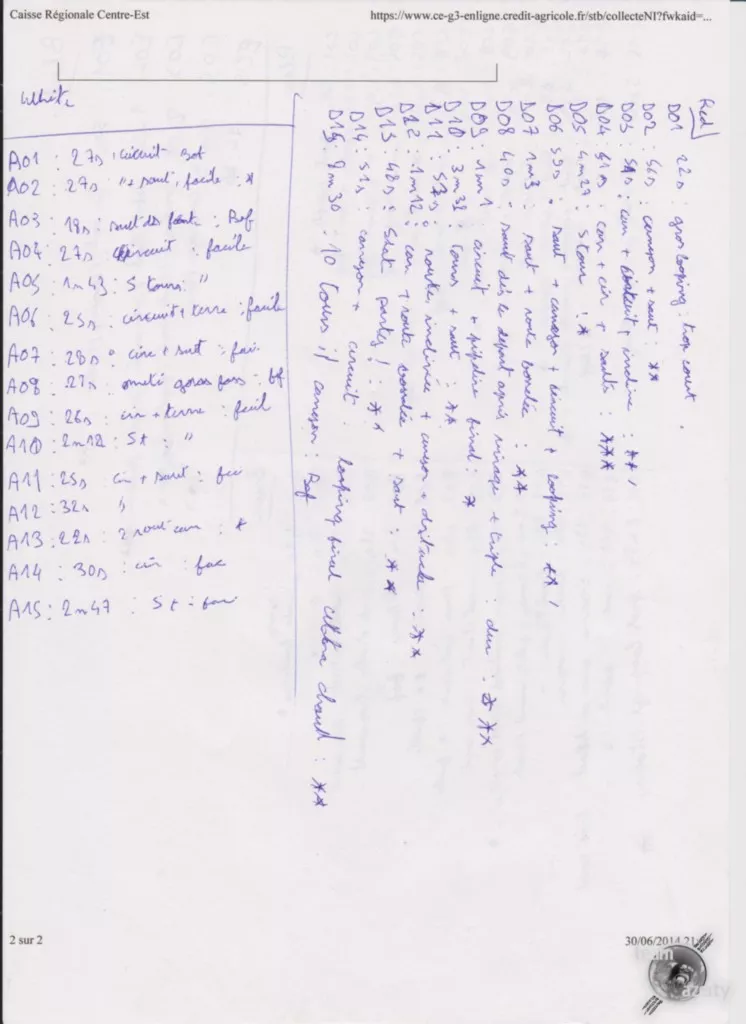 Caisse Régionale Centre-Est
https://www.ce-g3-enligne.credit-agricole.fr/stb/collecteNI?fwkaid=...
White
A01 : 27s : circuit Bof
A02 : 27s " + saut, facile : *
A03 : 19s : saut de : Bof
A04 : 27s circuit : facile
A05 : 1m43 : 5 tours : "
A06 : 25s : circuit + terre : facile
A07 : 28s : circ + saut : faci
A08 : 27s
A09 : 26s : cir + terre : facil
A10 : 2m12 : 5t : "
A11 : 25s cir + saut : fac
A12 : 32s "
A13 : 22s : 2 saut : *
A14 : 30s : cir : fac
A15 : 2m47 : 5t : faci
Red
D01 22s : gros looping : trop court.
D02 : 56s : canyon + saut : **
D03 : + incliné : **
D04 : can + cir + sauts : ***
D05 : 4m29 : 5 tour : *
D06 59s : saut + canyon + circuit + looping : **
D07 1m3 saut + route bombée : **
D08 40s : saut dès le départ après virage + triple : dur : ***
D09 : 1m1 : circuit + final : *
D10 : 3m38 : Tours + saut : **
D11 : 57s : route inclinée + canyon + obstacle : **
D12 : 1m12 : can + route bombée + saut : **
D13 : 48s : Start ! : **
D14 : 51s : canyon + circuit : looping final chaud : **
D15 : 9m30 : 10 tours, canyon : Bof
2 sur 2
30/06/2014 21